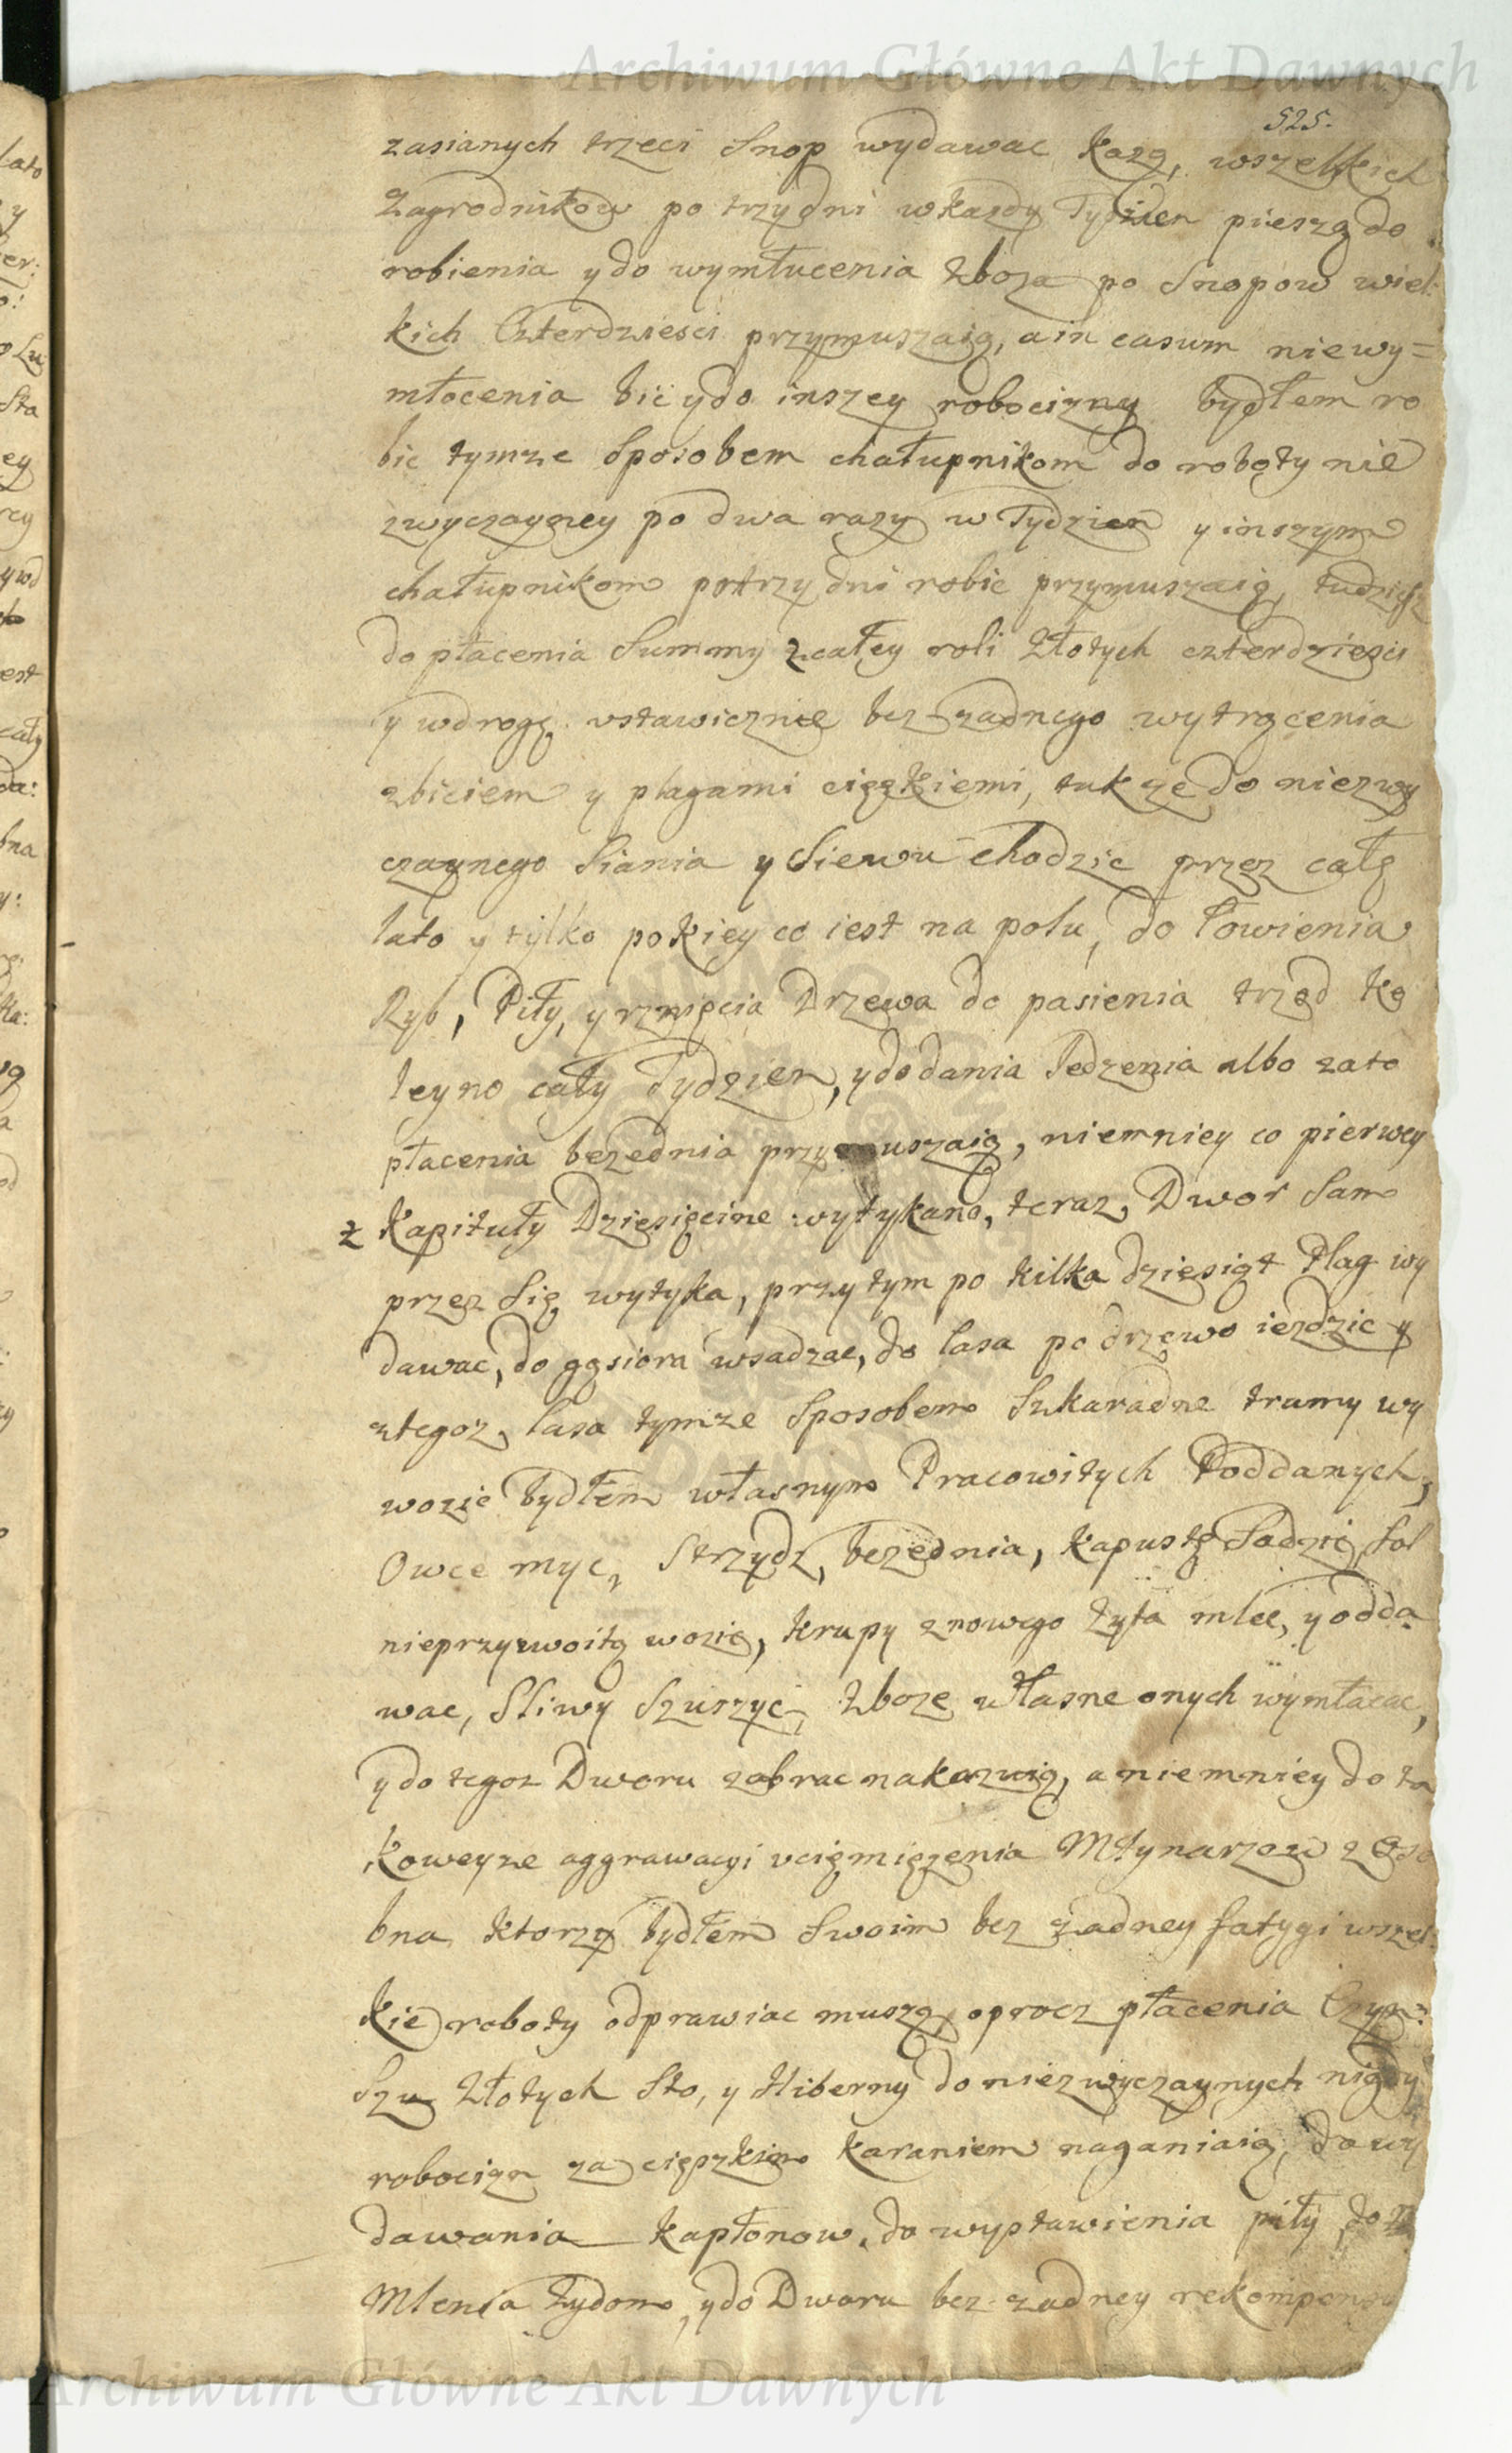 Archiwum Główne Akt Dawnych
525.
zasianych trzeci Snop wydawac każą, wszelkich
Zagrodnikow po trzy dni w kazdy Tydzien pieszą do
robienia y do wymłucenia Zboza po Snopow wiel:
kich Czterdziesci przymuszaią, a in casum niewy=
młocenia bić y do inszey robocizny bydłem ro
bic tymze Sposobem chałupnikom do roboty nie
zwyczayney po dwa razy w Tydzien y inszym
chałupnikom po trzy dni robic przymuszaią, tudziesz
do płacenia Summy z całey roli Złotych czterdziesci
y w drogę vstawicznie bez zadnego wytrącenia
z biciem y plagami cięzkiemi, tak ze do niezwy
czaynego Siania y Siewu chodzic przez całe
lato y tylko pokiey co iest na polu, do łowienia
Ryb, Piły, y rznięcia Drzewa do pasienia trzod ko
leyno cały Tydzien, y do dania Pedzenia albo za to
płacenia bezednia przymuszaią, niemniey co pierwey
z Kapituły Dziesięcine wytykano, teraz, Dwor Sam
przez Się wytyka, przy tym po kilka dziesiąt Plag wy
dawac, do gąsiora wsadzac, do lasa po drzewo iezdzic y
z tegoz lasa tymze Sposobem Szkaradne tramy wy
wozic bydłem własnym Pracowitych Poddanych,
Owce myc, Strzydz, bezednia, kapustę Sadzic, Sol
nieprzyzwoitą wozic, krupy z nowego zyta mlec, y odda
wac, Sliwy Szuszyć, Zboze własne onych wymłacac,
y do tegoz Dworu zabrac nakazuią, a niemniey do ta
koweyze aggrawacyi vcięmięzenia Młynarzow z Oso
bna ktorzy bydłem Swoim bez zadney fatygi wszel:
kie roboty odprawiac muszą, oprocz płacenia Czyn:
Szu Złotych Sto, y Hiberny do niezwyczaynych nigdy
robocizn za cięzkim karaniem naganiaią, do wy
dawania kapłonow, do wystawienia piły do
Mlenia Zydom, y do Dworu bez zadney rekompensy
Archiwum Główne Akt Dawnych